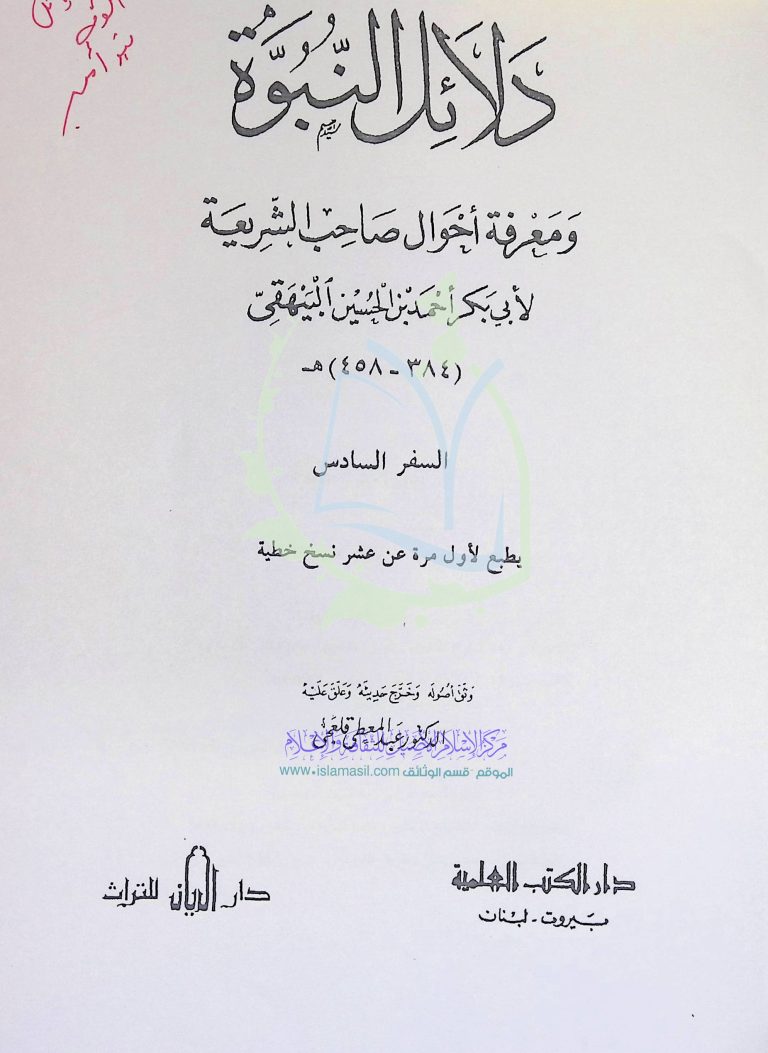 دَلَائِل النُّبُوَّة
وَمَعْرِفَة أَحْوَال صَاحِب الشَّرِيعَة
لأَبِي بَكر أَحْمَد بْن الْحُسَيْن الْبَيْهَقِيّ
(٣٨٤ - ٤٥٨) هـ
السفر السادس
يطبع لأول مرة عن عشر نسخ خطية
وَثّقَ أُصُولَه وَخَرَّجَ حَدِيثَهُ وَعَلَّقَ عَلَيْهِ
الدكتور عَبد المعطي قلعجي
مركز الإسلام الأصيل للثقافة والإعلام
الموقع - قسم الوثائق www.islamasil.com
دار الكتب العلمية
بَيروت - لبْنان
دار الريان للتراث